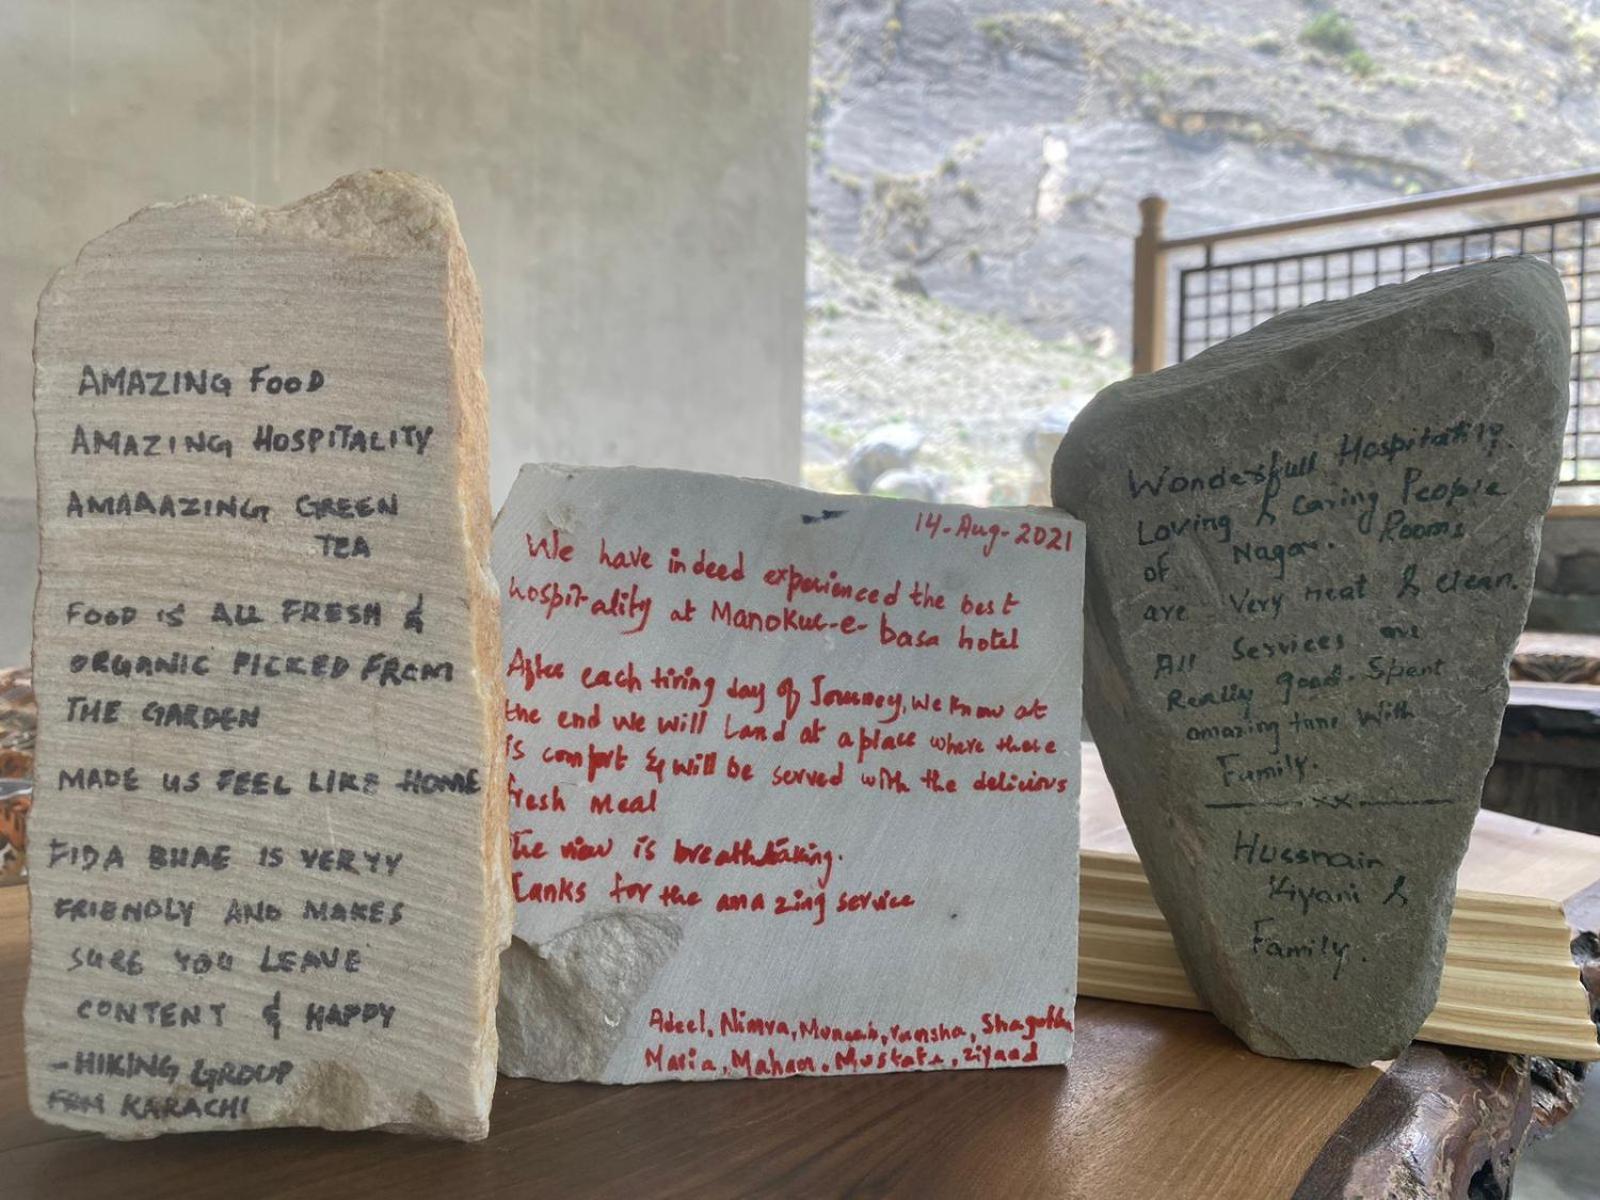 AMAZING FOOD
AMAZING HOSPITALITY
AMAAAZING GREEN
TEA
FOOD IS ALL FRESH &
ORGANIC PICKED FROM
THE GARDEN
MADE US FEEL LIKE HOME
FIDA BHAE IS VERYY
FRIENDLY AND MAKES
SURE YOU LEAVE
CONTENT & HAPPY
-HIKING GROUP
FROM KARACHI
14-Aug-2021
We have indeed experienced the best
hospitality at Manokur-e-basa hotel
After each tiring day of Journey, we know at
the end we will Land at a place where there
is comfort & will be served with the delicious
fresh meal
The view is breathtaking.
Tanks for the amazing service
Adeel, Nimra, Muneeb, Ramsha, Shagufta
Maria, Maham, Mustafa, Ziyaad
Wonderfull Hospitality.
Loving & Caring People
of Nagar. Rooms
are Very neat & clean.
All Services are
Really good. Spent
amazing time With
Family.
Hussnain
Kiyani &
Family.